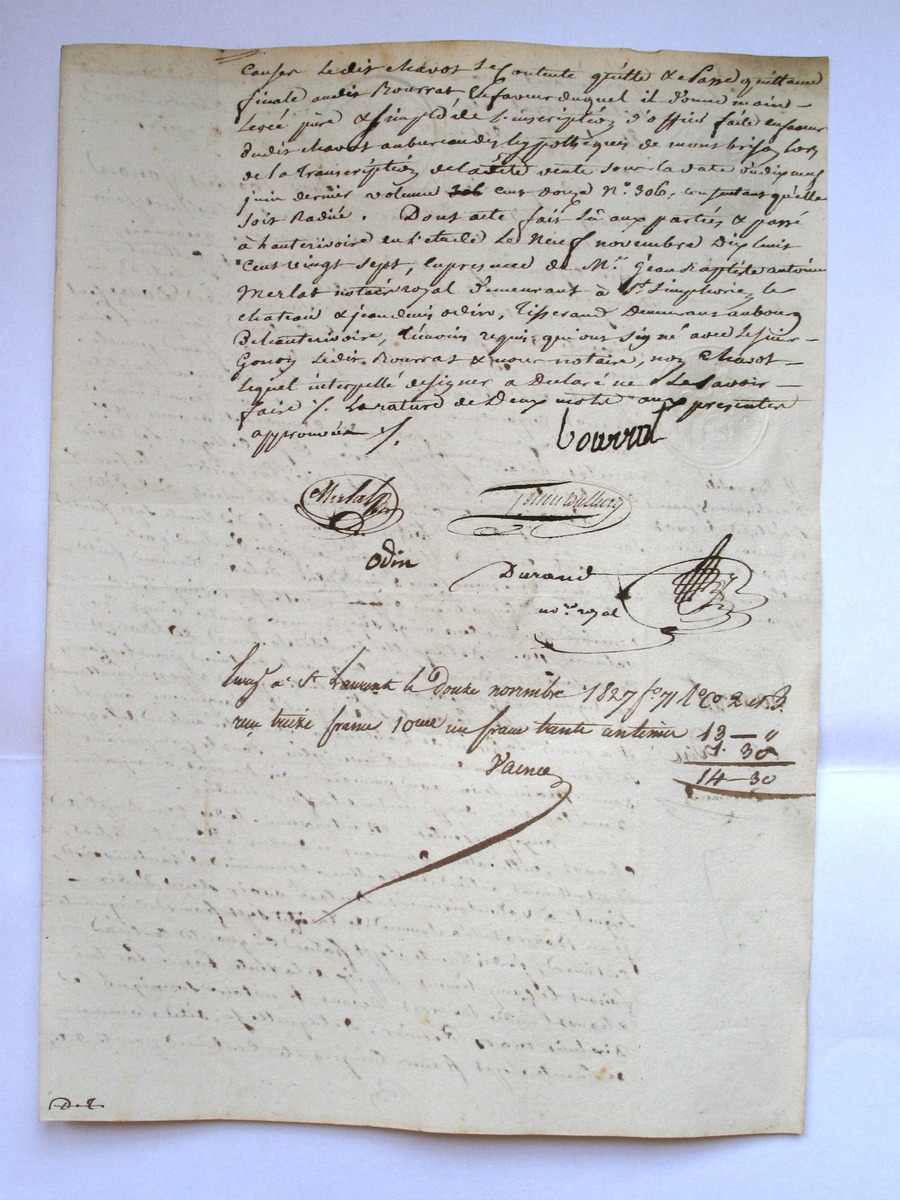 causes ledit chavot se contente quitte & passe quittance
finale audit Bourrat en faveur duquel il donne main-
levée pure & simple de l'inscription d'office faite en faveur
dudit chavot au bureau des hypothèques de montbrison lors
de la transcription de ladite vente sous la date du dix neuf
juin dernier volume cent douze N.º 306, consentant qu'elle
soit radiée. Dont acte fait lu aux parties & passé
à hauterivoire en l'étude le Neuf novembre Dix huit
cent vingt sept, en presence de Mr. Jean Baptiste antoine
Merlat notaire royal demeurant à St. Simphorien le
chateau & jean denis odin, tisserand demeurant au bourg
de hauterivoire, témoins requis qui ont signé avec le sieur
Gonon ledit Bourrat & nous notaire, non chavot
lequel interpellé de signer a declaré ne le savoir
faire /. La rature de deux mots aux presentes
approuvée /.
bourrat
Merlat
odin
Durand
nore. royal
St Laurent le Douze novembre 1827 fo 71 Ro Co 2 et 3.
reçu treize francs 10eme un franc trente centimes 13 — "
1. 30
14 — 30